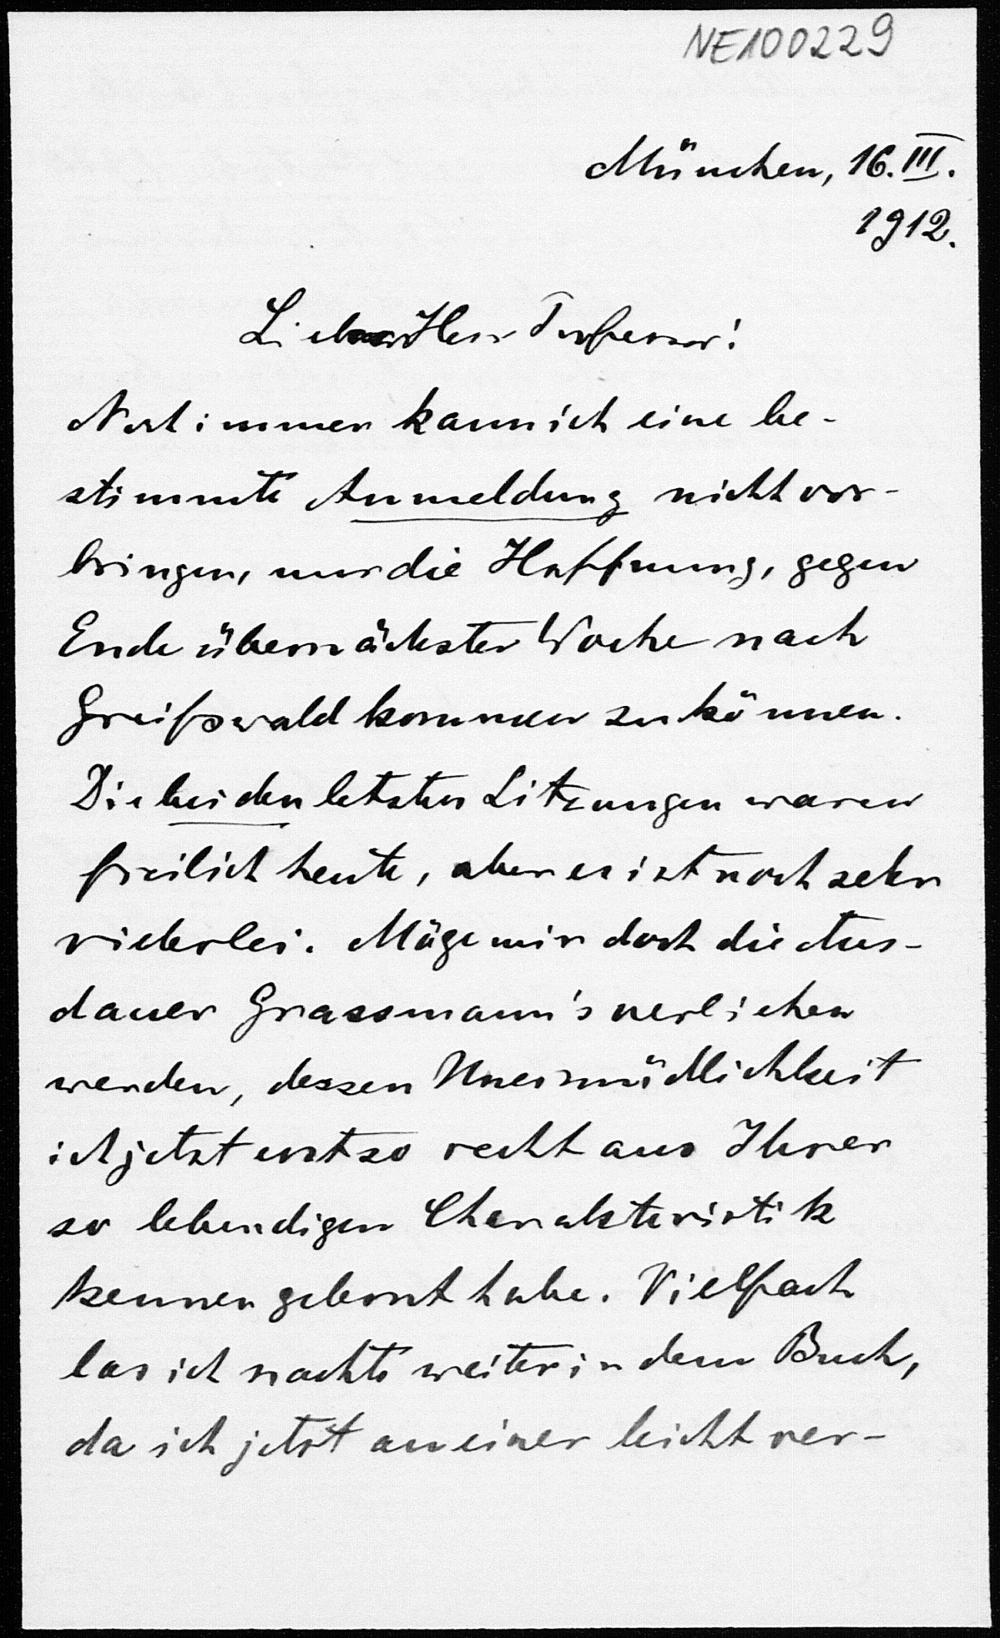 NE100229
München, 16. III.
1912.
Lieber Herr Professor!
Noch immer kann ich eine be-
stimmte Anmeldung nicht vor-
bringen, nur die Hoffnung, gegen
Ende übernächster Woche nach
Greifswald kommen zu können.
Die beiden letzten Sitzungen waren
freilich heute, aber es ist noch sehr
vielerlei. Möge mir doch die Aus-
dauer Grassmann's verliehen
werden, dessen Unermüdlichkeit
ich jetzt erst so recht aus Ihrer
so lebendigen Charakteristik
kennen gelernt habe. Vielfach
las ich nachts weiter in dem Buch,
da ich jetzt an einer leicht ver-